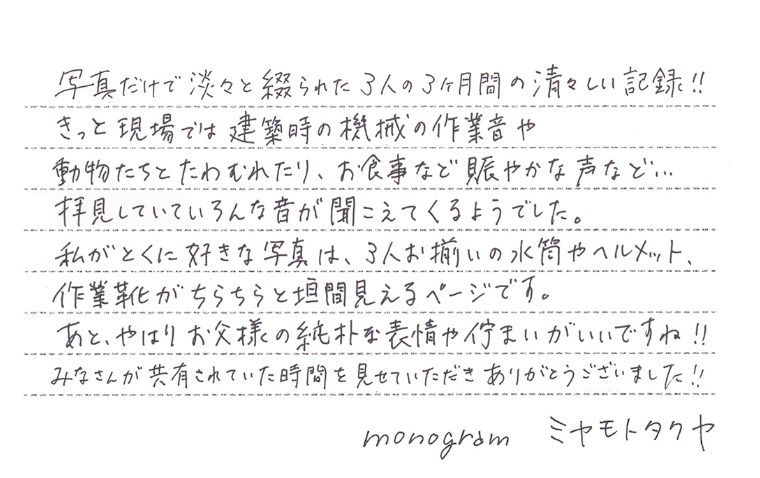 写真だけで淡々と綴られた3人の3ヶ月間の清々しい記録!!
きっと現場では建築時の機械の作業音や
動物たちとたわむれたり、お食事など賑やかな声など…
拝見していていろんな音が聞こえてくるようでした。
私がとくに好きな写真は、3人お揃いの水筒やヘルメット、
作業靴がちらちらと垣間見えるページです。
あと、やはりお父様の純朴な表情や佇まいがいいですね!!
みなさんが共有されていた時間を見せていただきありがとうございました!!
monogram ミヤモトタクヤ